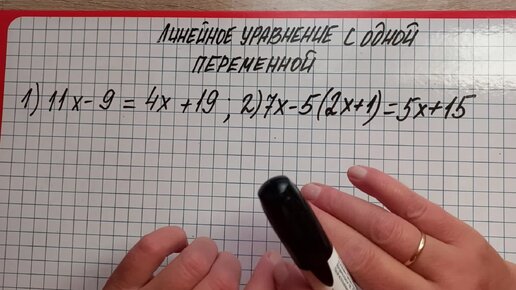 ЛИНЕЙНОЕ УРАВНЕНИЕ С ОДНОЙ
ПЕРЕМЕННОЙ
1) 11x - 9 = 4x + 19 ; 2) 7x - 5(2x+1) = 5x + 15